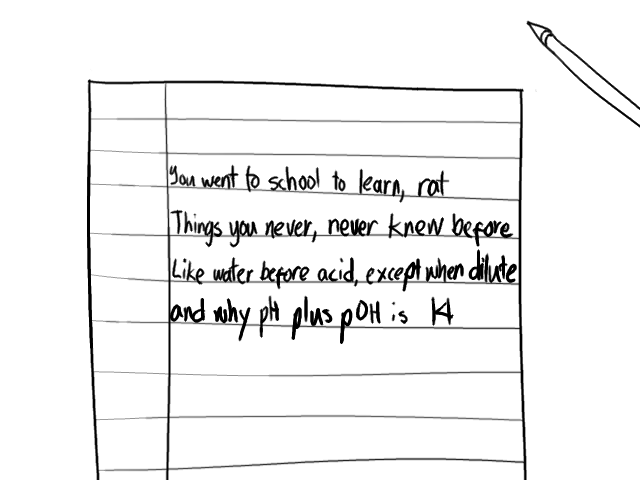 You went to school to learn, rat
Things you never, never knew before
Like water before acid, except when dilute
and why pH plus pOH is 14